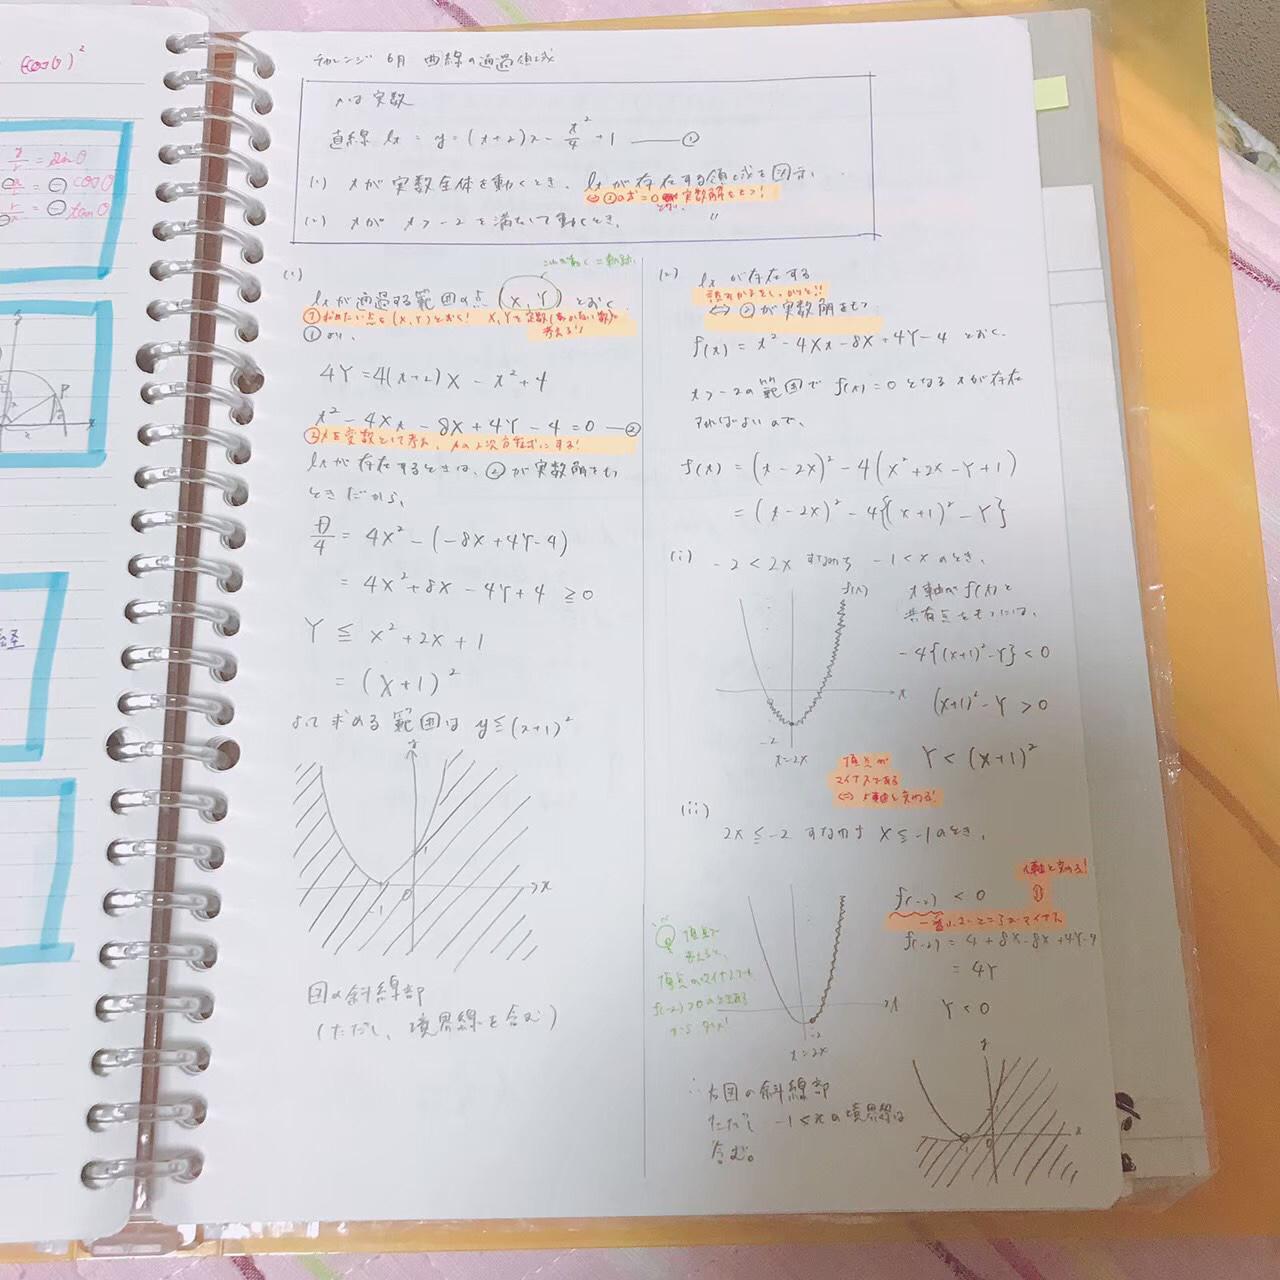 (cosθ)²
y/r = sinθ
x/r = ⊖ cosθ
= ⊖ tanθ
P
チャレンジ 6月 曲線の通過領域
tは実数
直線 lt = y = (t+2)x - t²/4 + 1 ―― ①
(1) tが実数全体を動くとき、ltが存在する領域を図示。
⇔ ②が実数解をもつ!
(2) tが t > -2 を満たして動くとき、 〃
(1)
これが動く = 軌跡
ltが通過する範囲の点 (X, Y) とおく
①求めたい点を(X, Y)とおく! X, Yを定数(動かない数)
考える!
①より、
4Y = 4(t+2)X - t² + 4
t² - 4Xt - 8X + 4Y - 4 = 0 ―②
②tを変数として考え、tの2次方程式にする!
ltが存在するときは、②が実数解をもつ
ときだから、
D/4 = 4X² - (-8X + 4Y - 4)
= 4X² + 8X - 4Y + 4 ≧ 0
Y ≦ X² + 2X + 1
= (X+1)²
よって求める範囲は y ≦ (x+1)²
y
1
-1
0
x
図の斜線部
(ただし、境界線を含む)
(2)
ltが存在する
⇔ ②が実数解をもつ
f(t) = t² - 4Xt - 8X + 4Y - 4 とおく
t > -2の範囲で f(t) = 0 となる tが存在
すればよいので、
f(t) = (t - 2X)² - 4(X² + 2X - Y + 1)
= (t - 2X)² - 4{(X+1)² - Y}
(i) -2 < 2X すなわち -1 < X のとき、
f(t)
t軸が f(t)と
共有点をもつには、
-4{(X+1)² - Y} < 0
t
(X+1)² - Y > 0
-2
t=2X
Y < (X+1)²
頂点が
マイナスである
⇔ t軸と交わる!
(ii)
2X ≦ -2 すなわち X ≦ -1 のとき、
t軸と交わる!
f(-2) < 0
f(-2) = 4 + 8X - 8X + 4Y - 4
= 4Y
Y < 0
頂点で
考えると、
頂点がマイナスでも
f(-2) > 0
t
-2
t=2X
∴ 右図の斜線部
ただし -1 < xの境界線は
含む。
y
-1
0
x